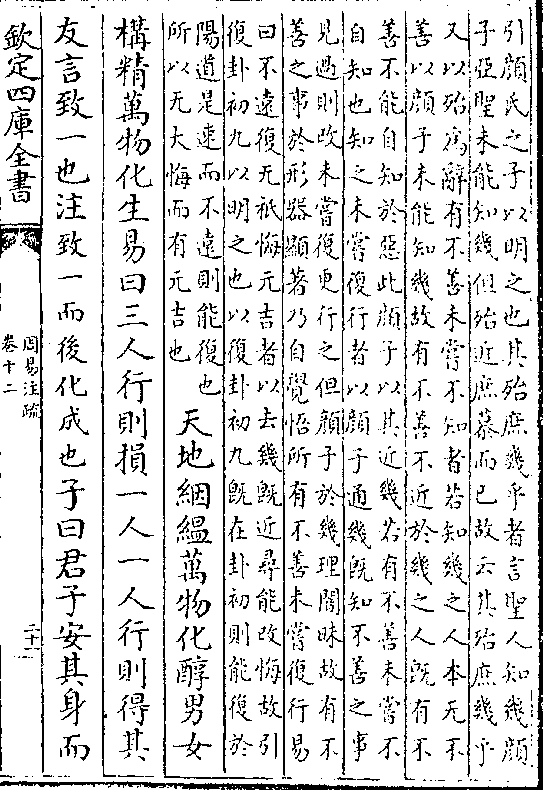 引顔氏之子以明之也其殆庶幾乎者言聖人知幾顔
子亞聖未能知幾但殆近庶慕而已故云其殆庶幾乎
又以殆為辭有不善未嘗不知者若知幾之人本无不
善以顔子未能知幾故有不善不近於幾之人既有不
善不能自知於惡此顔子以其近幾若有不善未嘗不
自知也知之未嘗復行者以顔子通幾既知不善之事
見過則改未嘗復更行之但顔子於幾理闇昧故有不
善之事於形器顯著乃自覺悟所有不善未嘗復行易
曰不遠復无祇悔元吉者以去幾既近尋能改悔故引
復卦初九以明之也以復卦初九既在卦初則能復於
陽道是速而不遠則能復也
所以无大悔而有元吉也
天地絪緼萬物化醇男女
構精萬物化生易曰三人行則損一人一人行則得其
友言致一也注致一而後化成也子曰君子安其身而
欽定四庫全書
周易注疏
卷十二
二十一